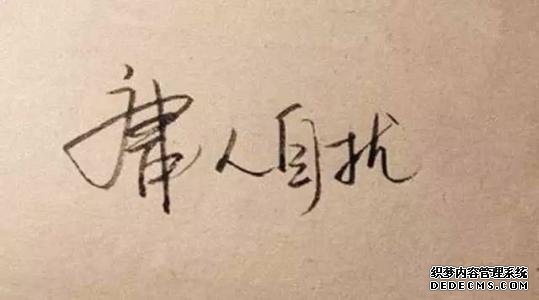 庸人自扰
织梦内容管理系统
DEDECMS.COM